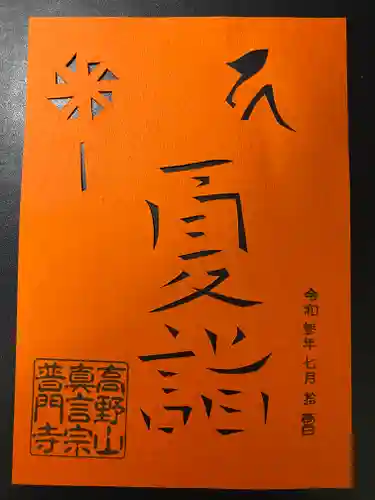 夏詣
令和年七月拾日
高野山
真言宗
普門寺